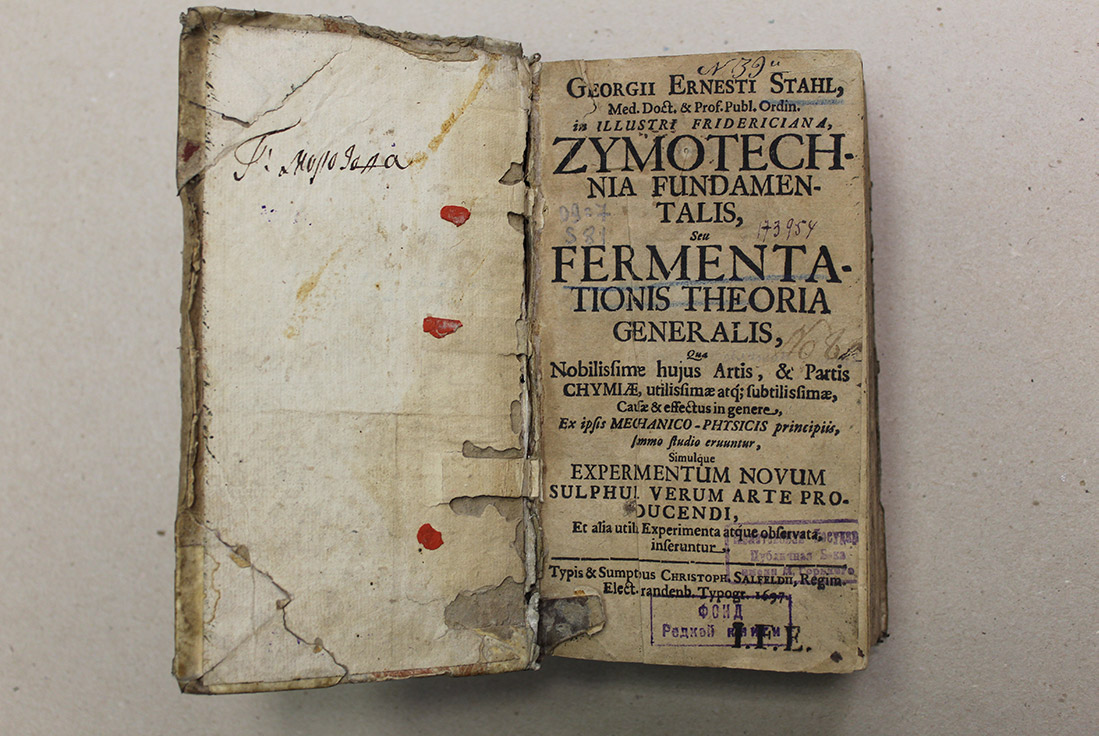 Г. Морозова
N 39
GEORGII ERNESTI STAHL,
Med. Doct. & Prof. Publ. Ordin.
in ILLUSTRI FRIDERICIANA,
ZYMOTECH-
NIA FUNDAMEN-
TALIS,
Seu
173954
FERMENTA-
TIONIS THEORIA
GENERALIS,
Qua
Nobilissimæ hujus Artis, & Partis
CHYMIÆ, utilissimæ atq́; subtilissimæ,
Causæ & effectus in genere,
Ex ipsis MECHANICO-PHYSICIS principiis,
summo studio eruuntur,
Simulque
EXPERMENTUM NOVUM
SULPHUR VERUM ARTE PRO-
DUCENDI,
Et alia utilia Experimenta atque observata,
inseruntur.
Typis & Sumptibus CHRISTOPH. SALFELDII, Regim.
Elect. Brandenb. Typogr. 1697.
Публичная Б-ка
имени М. Горького
ФОНД
Редкой книги
I.F.E.